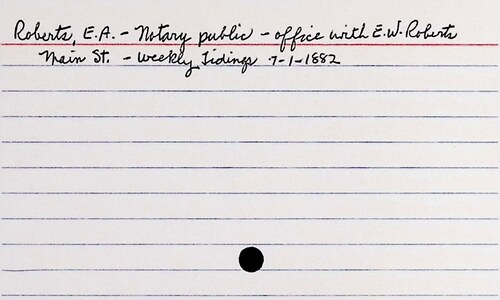 Roberts, E.A. - Notary public - office with E.W. Roberts
Main St. - Weekly Tidings 7-1-1882